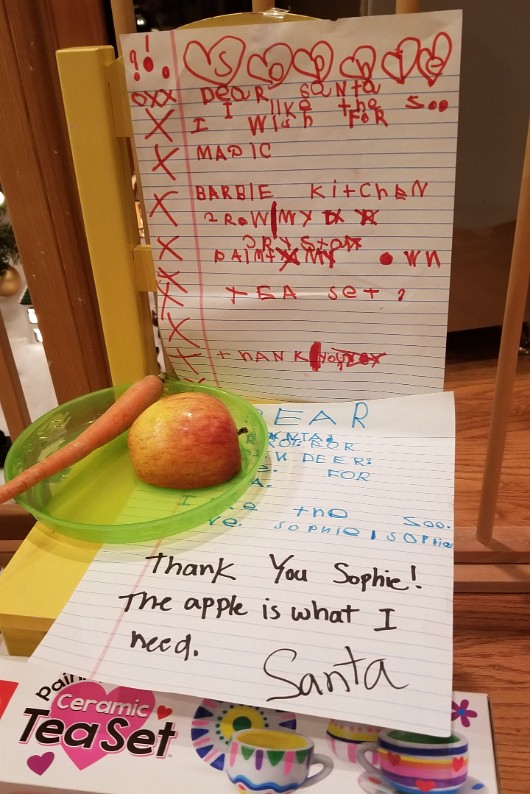 Sophie
DEAR SANTA
I like the Soo
I Wish FOR
MAGIC
BARBIE KitcHEN
GROW MY
CRYStal
PAINt MY OWN
tEA set
tHANK YOU
DEAR
FOR
FOR
the Soo.
SOPHIE SOPHie
Thank You Sophie!
The apple is what I
need.
Santa
Paint
Ceramic
Tea Set